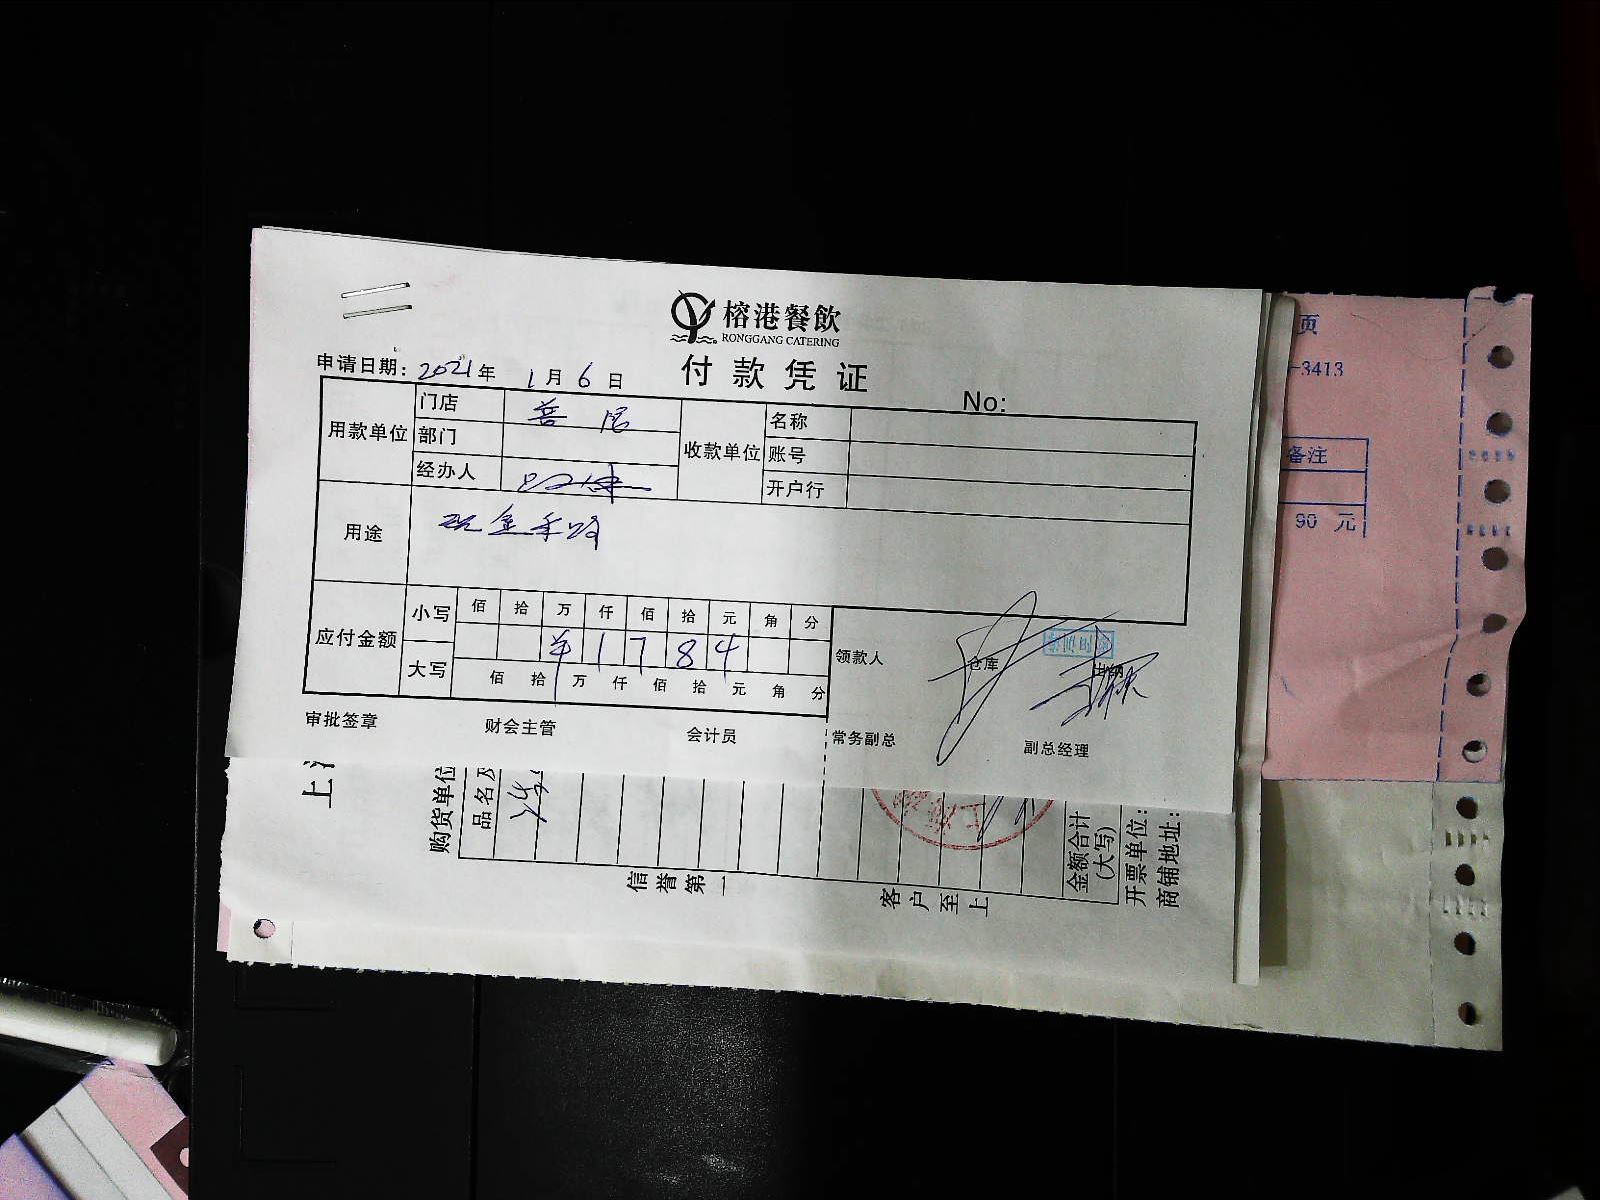 榕港餐飲
RONGGANG CATERING
付款凭证
申请日期: 2021年 1月 6日
No:
用款单位 门店 收款单位 名称
部门 账号
经办人 开户行
用途 现金采购
应付金额 小写 佰 拾 万 仟 佰 拾 元 角 分
¥1784
大写 佰 拾 万 仟 佰 拾 元 角 分
领款人 仓库
审批签章 财会主管 会计员 常务副总 副总经理
页
-3413
备注
90 元
上
购货单位
品名及
金额合计
(大写)
开票单位:
商铺地址:
信誉第一
客户至上